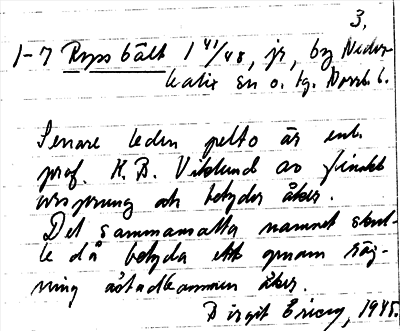 3.
1-7 Ryssbält 1 41/48, jr, by Neder-
kalix sn o. tg. Norrb. l.
Senare leden pelto är enl.
prof. K. B. Wiklund av finskt
ursprung och betyder åker.
Det sammansatta namnet skul-
le då betyda ett genom röj-
ning åstadkommen åker.
Birgit Ericson, 1945.